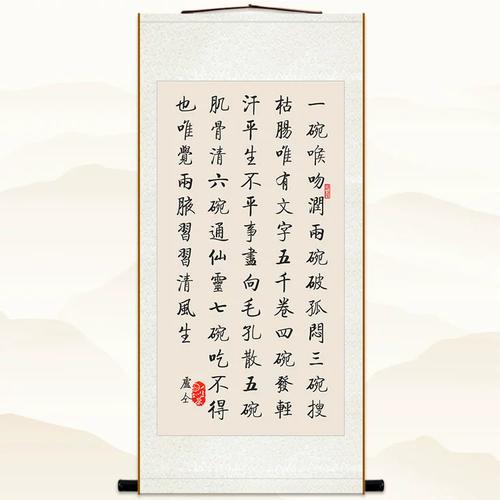 一碗喉吻潤兩碗破孤悶三碗搜
枯腸唯有文字五千卷四碗發輕
汗平生不平事盡向毛孔散五碗
肌骨清六碗通仙靈七碗吃不得
也唯覺兩腋習習清風生
盧仝